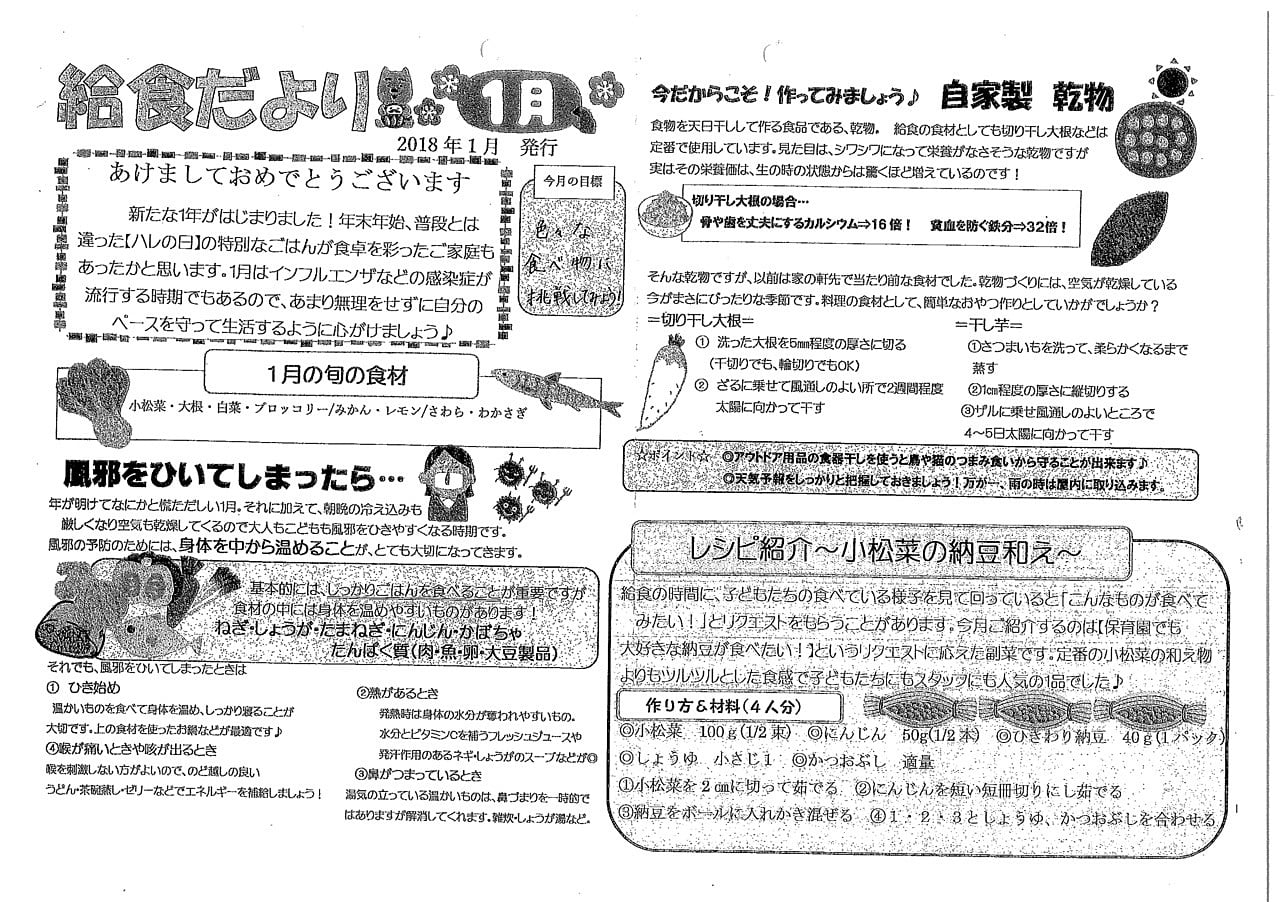 給食だより
1月
2018年1月 発行
あけましておめでとうございます
新たな1年がはじまりました！年末年始、普段とは
違った【ハレの日】の特別なごはんが食卓を彩ったご家庭も
あったかと思います。1月はインフルエンザなどの感染症が
流行する時期でもあるので、あまり無理をせずに自分の
ペースを守って生活するように心がけましょう♪
今月の目標
色々な
食べ物に
挑戦してみよう！
1月の旬の食材
小松菜・大根・白菜・ブロッコリー/みかん・レモン/さわら・わかさぎ
風邪をひいてしまったら…
年が明けてなにかと慌ただしい1月。それに加えて、朝晩の冷え込みも
厳しくなり空気も乾燥してくるので大人もこどもも風邪をひきやすくなる時期です。
風邪の予防のためには、身体を中から温めることが、とても大切になってきます。
基本的には、しっかりごはんを食べることが重要ですが
食材の中には身体を温めやすいものがあります！
ねぎ・しょうが・たまねぎ・にんじん・かぼちゃ
たんぱく質（肉・魚・卵・大豆製品）
それでも、風邪をひいてしまったときは
① ひき始め
温かいものを食べて身体を温め、しっかり寝ることが
大切です。上の食材を使ったお鍋などが最適です♪
④喉が痛いときや咳が出るとき
喉を刺激しない方がよいので、のど越しの良い
うどん・茶碗蒸し・ゼリーなどでエネルギーを補給しましょう！
②熱があるとき
発熱時は身体の水分が奪われやすいもの。
水分とビタミンCを補うフレッシュジュースや
発汗作用のあるネギ・しょうがのスープなどが◎
③鼻がつまっているとき
湯気の立っている温かいものは、鼻づまりを一時的で
はありますが解消してくれます。雑炊・しょうが湯など。
今だからこそ！作ってみましょう♪ 自家製 乾物
食物を天日干しして作る食品である、乾物。 給食の食材としても切り干し大根などは
定番で使用しています。見た目は、シワシワになって栄養がなさそうな乾物ですが
実はその栄養価は、生の時の状態からは驚くほど増えているのです！
切り干し大根の場合…
骨や歯を丈夫にするカルシウム⇒16倍！ 貧血を防ぐ鉄分⇒32倍！
そんな乾物ですが、以前は家の軒先で当たり前な食材でした。乾物づくりには、空気が乾燥している
今がまさにぴったりな季節です。料理の食材として、簡単なおやつ作りとしていかがでしょうか？
＝切り干し大根＝
① 洗った大根を5㎜程度の厚さに切る
（千切りでも、輪切りでもOK）
② ざるに乗せて風通しのよい所で2週間程度
太陽に向かって干す
＝干し芋＝
①さつまいもを洗って、柔らかくなるまで
蒸す
②1㎝程度の厚さに縦切りする
③ザルに乗せ風通しのよいところで
4～5日太陽に向かって干す
☆ポイント☆ ◎アウトドア用品の食器干しを使うと鳥や猫のつまみ食いから守ることが出来ます♪
◎天気予報をしっかりと把握しておきましょう！万が一、雨の時は屋内に取り込みます。
レシピ紹介～小松菜の納豆和え～
給食の時間に、子どもたちの食べている様子を見て回っていると「こんなものが食べて
みたい！」とリクエストをもらうことがあります。今月ご紹介するのは【保育園でも
大好きな納豆が食べたい！】というリクエストに応えた副菜です。定番の小松菜の和え物
よりもツルツルとした食感で子どもたちにもスタッフにも人気の1品でした♪
作り方＆材料（4人分）
◎小松菜 100g(1/2束) ◎にんじん 50g(1/2本) ◎ひきわり納豆 40g(1パック)
◎しょうゆ 小さじ1 ◎かつおぶし 適量
①小松菜を2㎝に切って茹でる ②にんじんを短い短冊切りにし茹でる
③納豆をボールに入れかき混ぜる ④1・2・3としょうゆ、かつおぶしを合わせる